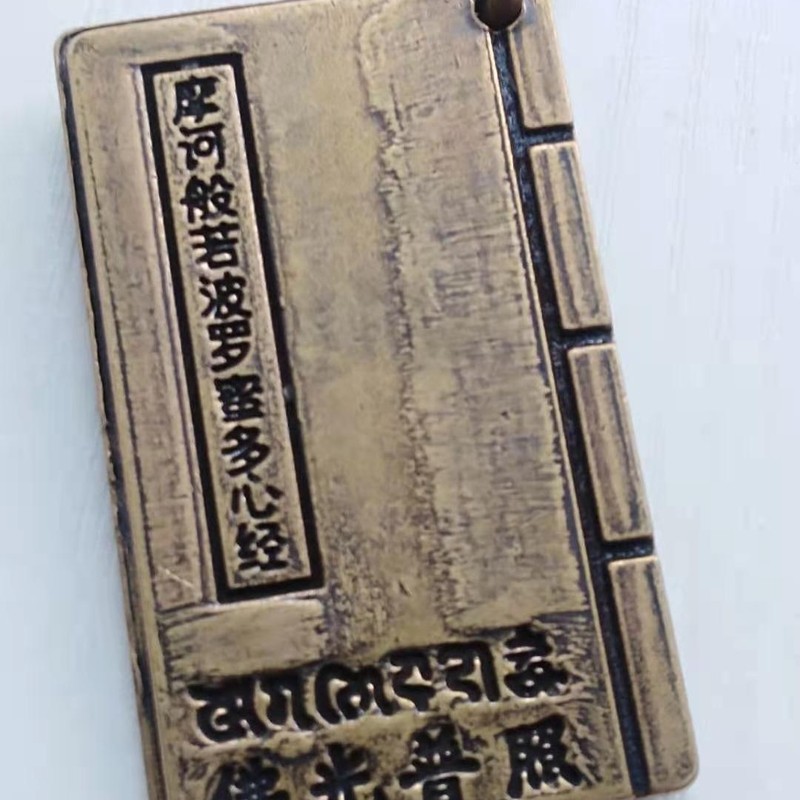 摩诃般若波罗蜜多心经
佛光普照